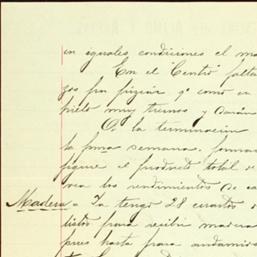 en iguales condiciones el ma
En el "Centro" falta
jos por pizcar qe como en
muy tiernos y darán
A la terminación
la pma semana, forma
figure el producto total d
sea los rendimientos de ca
Madera = Ya tengo 28 cuartos
listos para recibir madera
pues hasta para andamios